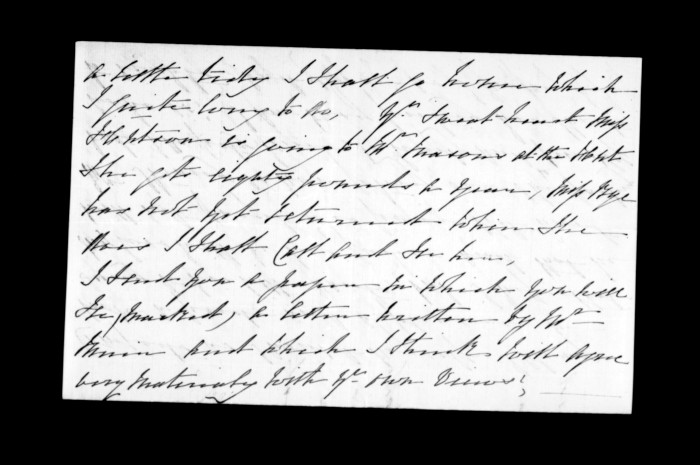 a little tidy I shall go home which
I quite long to do, Yr. Sweet heart Miss
is going to Mr. Masons at the Hutt
She gets eighty pounds a year, Miss
has not yet returned when She
does I shall Call and See her,
I Send you a paper in which you will
See, Marked, a letter written by Mr
and which I think will agree
very materialy with Yr. own Views;